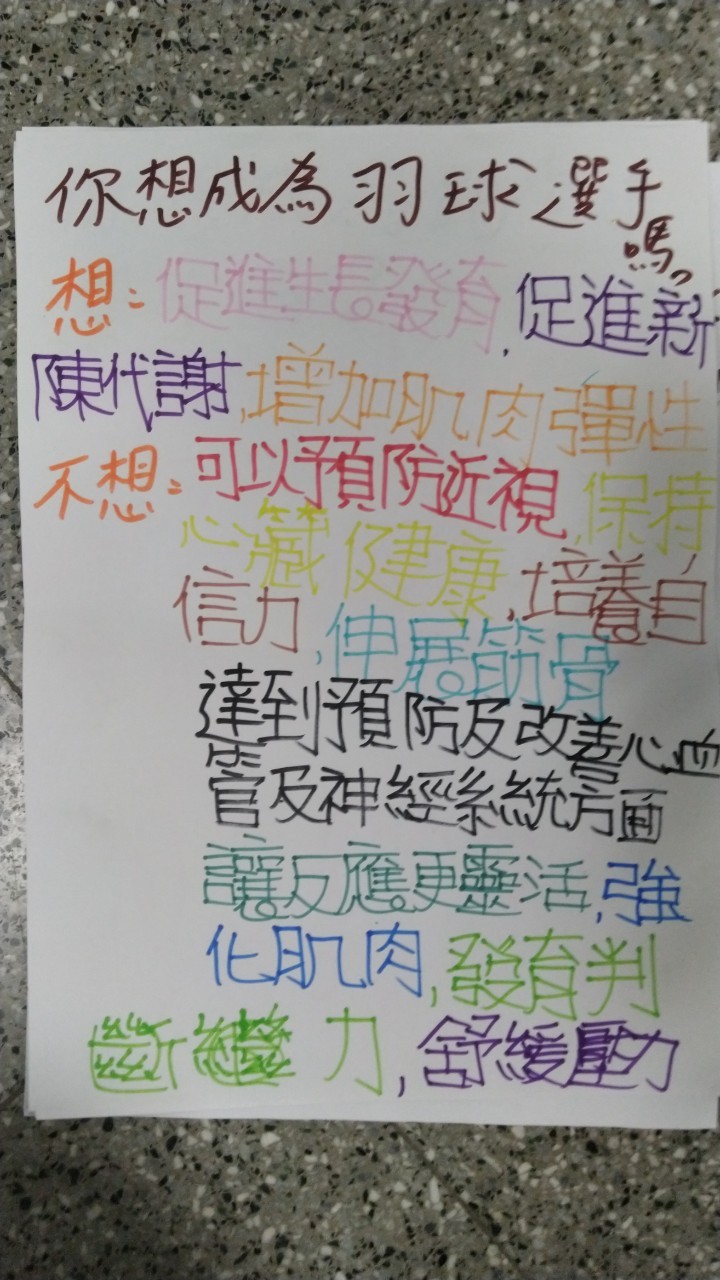 你想成為羽球選手
嗎?
想:促進生長發育,促進新
陳代謝,增加肌肉彈性
不想:可以預防近視,保持
心臟健康,培養自
信力,伸展筋骨
達到預防及改善心血
管及神經系統方面
讓反應更靈活,強
化肌肉,發育判
斷 力,舒緩壓力